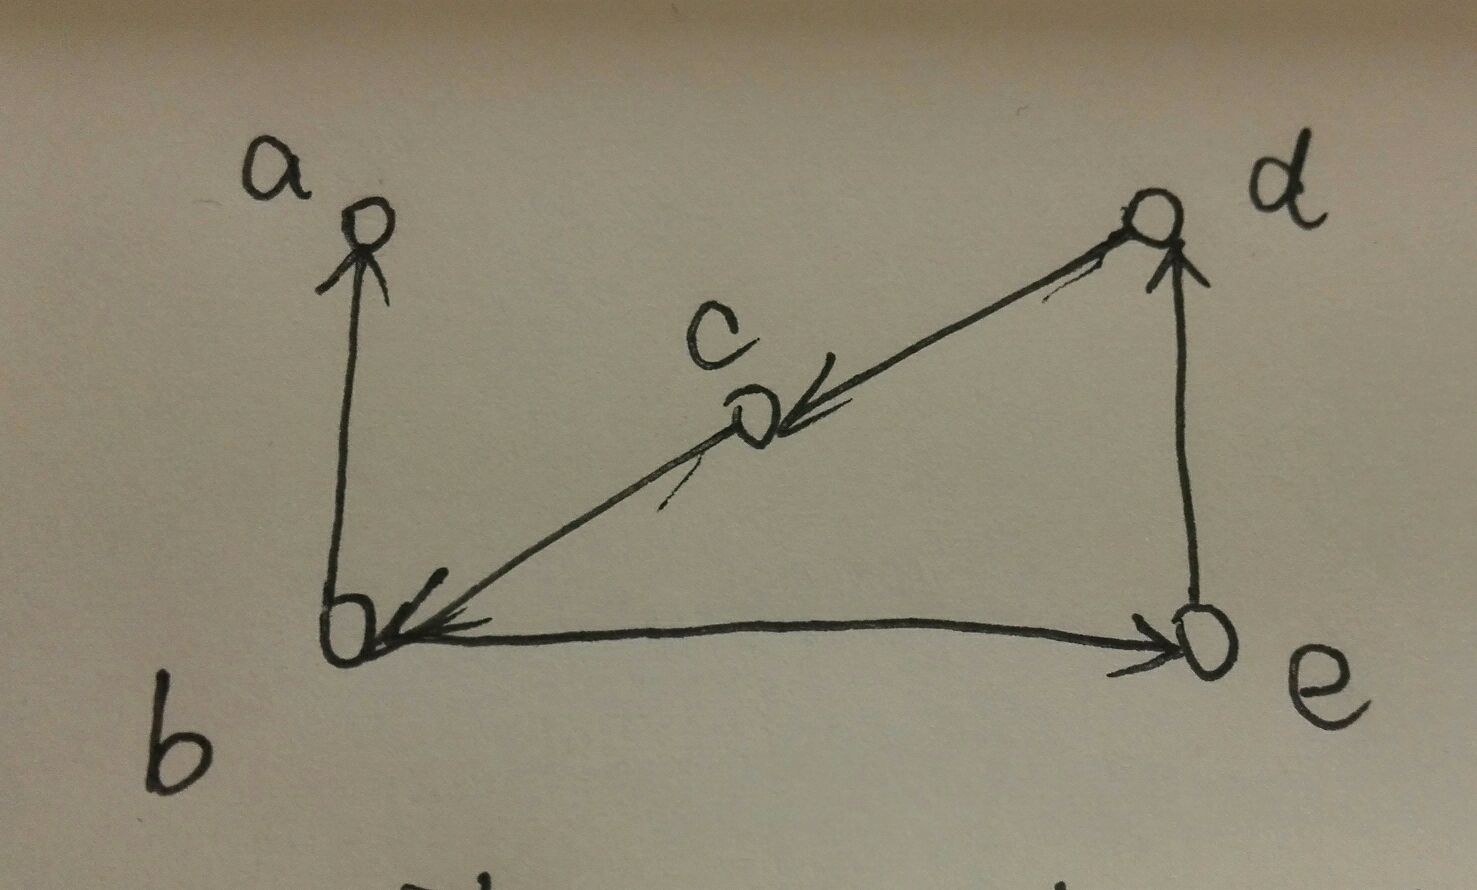 a
d
c
b
e